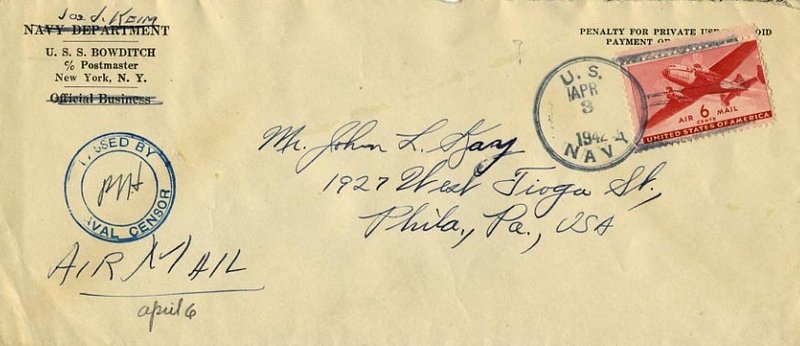 Jos. J. Keim
NAVY DEPARTMENT
U. S. S. BOWDITCH
c/o Postmaster
New York, N. Y.
Official Business
PENALTY FOR PRIVATE USE
PAYMENT OF
U. S.
APR
3
1942
NAVY
AIR 6 MAIL
CENTS
UNITED STATES OF AMERICA
PASSED BY
NAVAL CENSOR
Mr. John L. Kay
1927 West Tioga St.,
Phila., Pa., USA
AIR MAIL
april 6